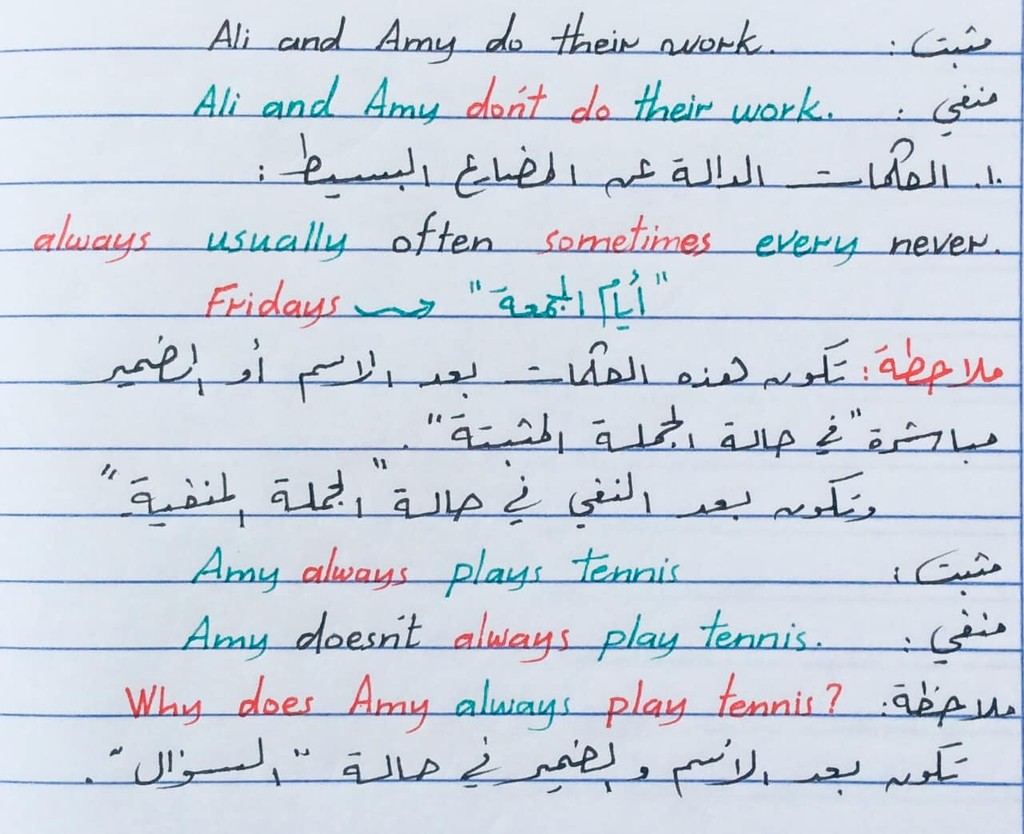 مثبت : Ali and Amy do their work.
منفي : Ali and Amy don't do their work.
١٠. الكلمات الدالة عن المضارع البسيط :
always usually often sometimes every never.
Fridays → "أيام الجمعة"
ملاحظة : تكون هذه الكلمات بعد الاسم أو الضمير
مباشرة "في حالة الجملة المثبتة".
وتكون بعد النفي في حالة "الجملة المنفية"
مثبت : Amy always plays tennis
منفي : Amy doesn't always play tennis.
ملاحظة : Why does Amy always play tennis?
تكون بعد الأسم والضمير في حالة "السؤال".